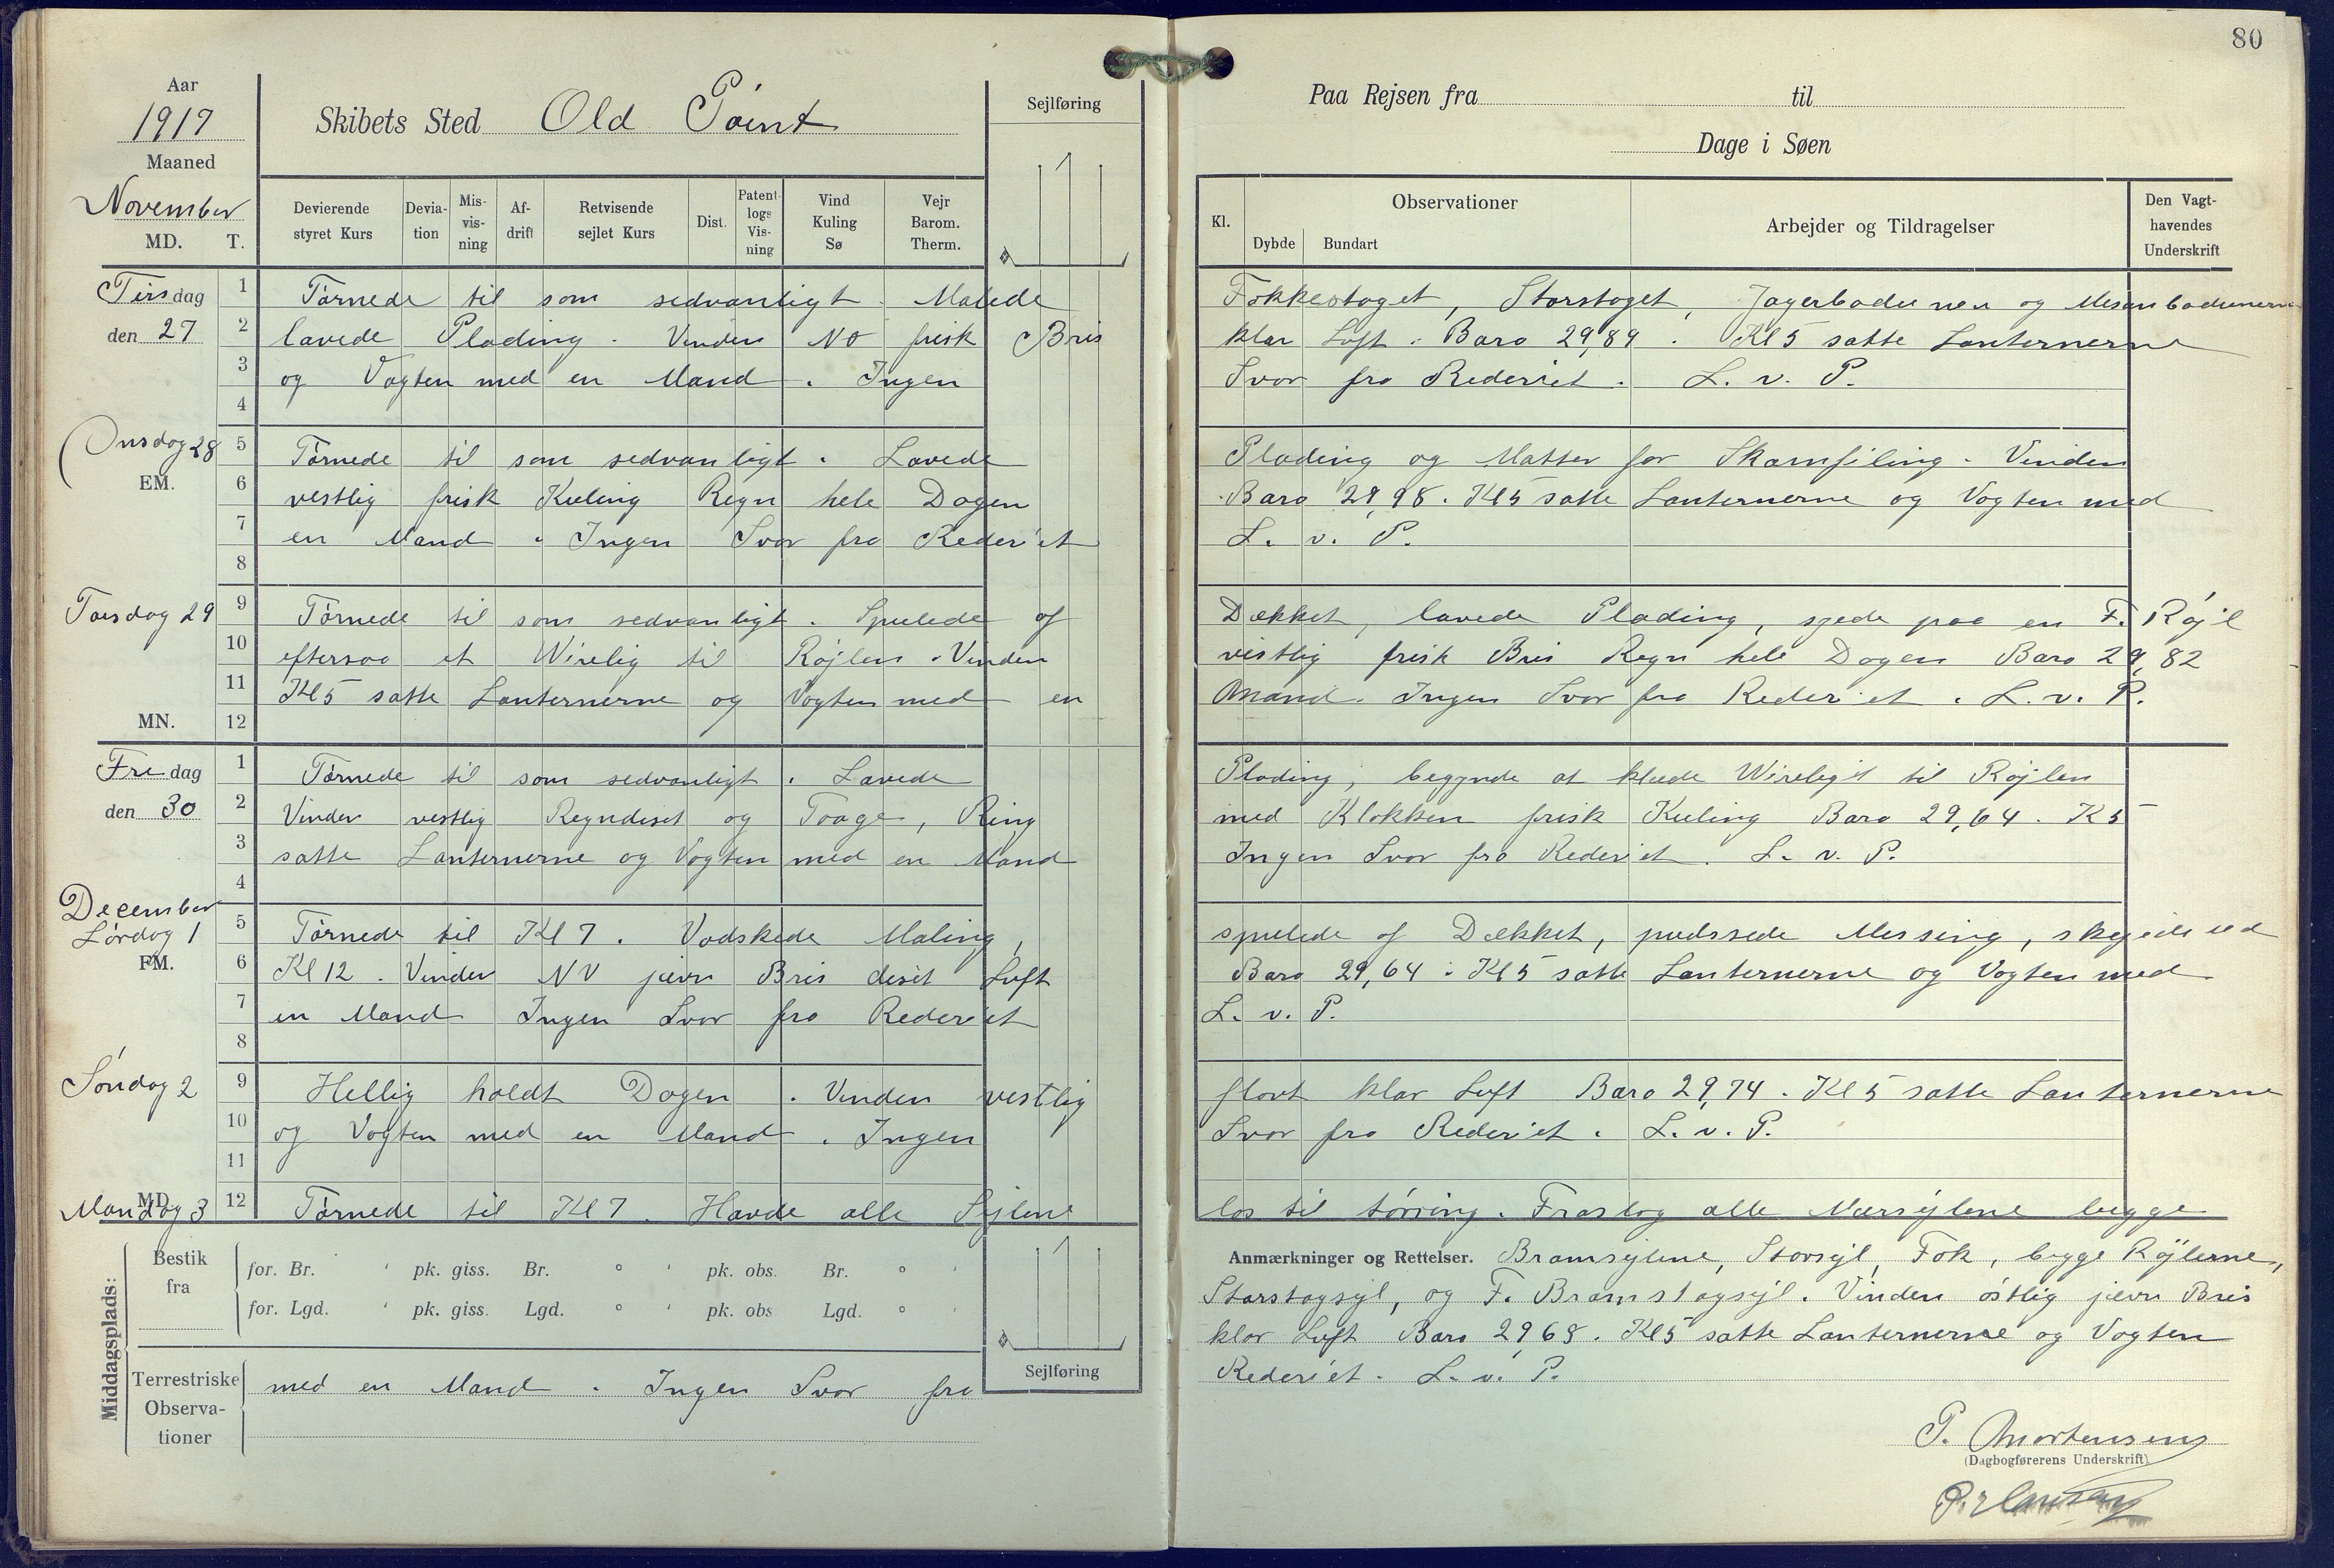 80
Aar
1917
Maaned
November
MD. T.
Skibets Sted Old Point
Sejlføring
Paa Rejsen fra til
Dage i Søen
Devierende styret Kurs
Devia-tion
Mis-vis-ning
Af-drift
Retvisende sejlet Kurs
Dist.
Patent-logs Vis-ning
Vind Kuling Sø
Vejr Barom. Therm.
Kl.
Observationer
Dybde Bundart
Arbejder og Tildragelser
Den Vagt-havendes Underskrift
Tirsdag
den 27
1 Tørnede til som sedvanligt. Malede Fokkestaget, Storstaget, Jagerbadunen og Mesanbadunerne
2 lavede Plading. Vinden NO frisk Bris klar Luft. Baro 29,89. Kl 5 satte Lanternerne
3 og Vagten med en Mand. Ingen Svar fra Rederiet. L. v. P.
4
Onsdag 28
EM.
5 Tørnede til som sedvanligt. Lavede Plading og Matter for Skamfiling. Vinden
6 vestlig frisk Kuling Regn hele Dagen Baro 29,98. Kl 5 satte Lanternerne og Vagten med
7 en Mand. Ingen Svar fra Rederiet L. v. P.
8
Torsdag 29
9 Tørnede til som sedvanligt. Spulede af Dækket, lavede Plading, syede paa en F. Røjl
10 eftersaa et Wirelig til Røjlen. Vinden vestlig frisk Bris Regn hele Dagen Baro 29,82
11 Kl 5 satte Lanternerne og Vagten med en Mand. Ingen Svar fra Rederiet. L. v. P.
MN. 12
Fredag
den 30
1 Tørnede til som sedvanligt. Lavede Plading, begynde at klæde Wireligit til Røjlen
2 Vinden vestlig Regndiset og Taage, Ring med Klokken frisk Kuling Baro 29,64. K 5
3 satte Lanternerne og Vagten med en Mand Ingen Svar fra Rederiet. L. v. P.
4
December
Lørdag 1
FM.
5 Tørnede til Kl 7. Vadskede Maling, spulede af Dækket, pudssede Messing, ud
6 Kl 12. Vinden NV jevn Bris diset Luft Baro 29,64. Kl 5 satte Lanternerne og Vagten med
7 en Mand Ingen Svar fra Rederiet L. v. P.
8
Søndag 2
9 Hellig holdt Dagen. Vinden vestlig flovt klar Luft Baro 29,74. Kl 5 satte Lanternerne
10 og Vagten med en Mand. Ingen Svar fra Rederiet. L. v. P.
11
MD.
Mandag 3
12 Tørnede til Kl 7. Havde alle Sejlene løs til tørring. Fraslog alle begge
Anmærkninger og Rettelser. Bramsejlene, Storsejl, Fok, begge Røjlerne,
Storstagsejl, og F. Bramstagsejl. Vinden østlig jevn Bris
klar Luft Baro 29,68. Kl 5 satte Lanternerne og Vagten
med en Mand. Ingen Svar fra Rederiet. L. v. P.
Middagsplads:
Bestik fra
for. Br. ' pk. giss. Br. ° ' pk. obs. Br. ° '
for. Lgd. ' pk. giss. Lgd. ° ' pk. obs Lgd. ° '
Terrestriske Observa-tioner
Sejlføring
P. Mortensen
(Dagbogførerens Underskrift)